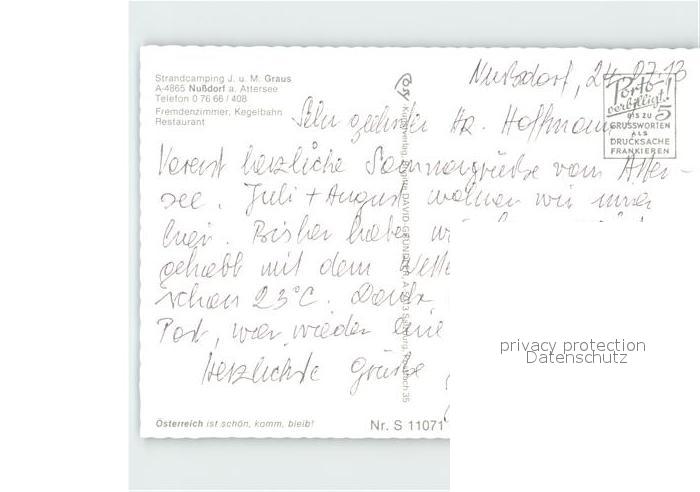 Strandcamping J. u. M. Graus
A-4865 Nußdorf a. Attersee
Telefon 0 76 66 / 408
Fremdenzimmer, Kegelbahn
Restaurant
Nußdorf, 24.07.
Porto-
verbilligt!
BIS ZU 5
GRUSSWORTEN
ALS
DRUCKSACHE
FRANKIEREN
Sehr geehrter Hr. Hoffmann
Vorerst herzliche Sonnengrüße vom Atter-
see. Juli + August wohnen wir immer
hier. Bisher haben
gehabt mit dem Wette
schon 23°C. Danke
Post, war wieder eine
Herzlichste Grüße
Österreich ist schön, komm, bleib!
Nr. S 11071
DAVID GRÜNDLER
privacy protection
Datenschutz